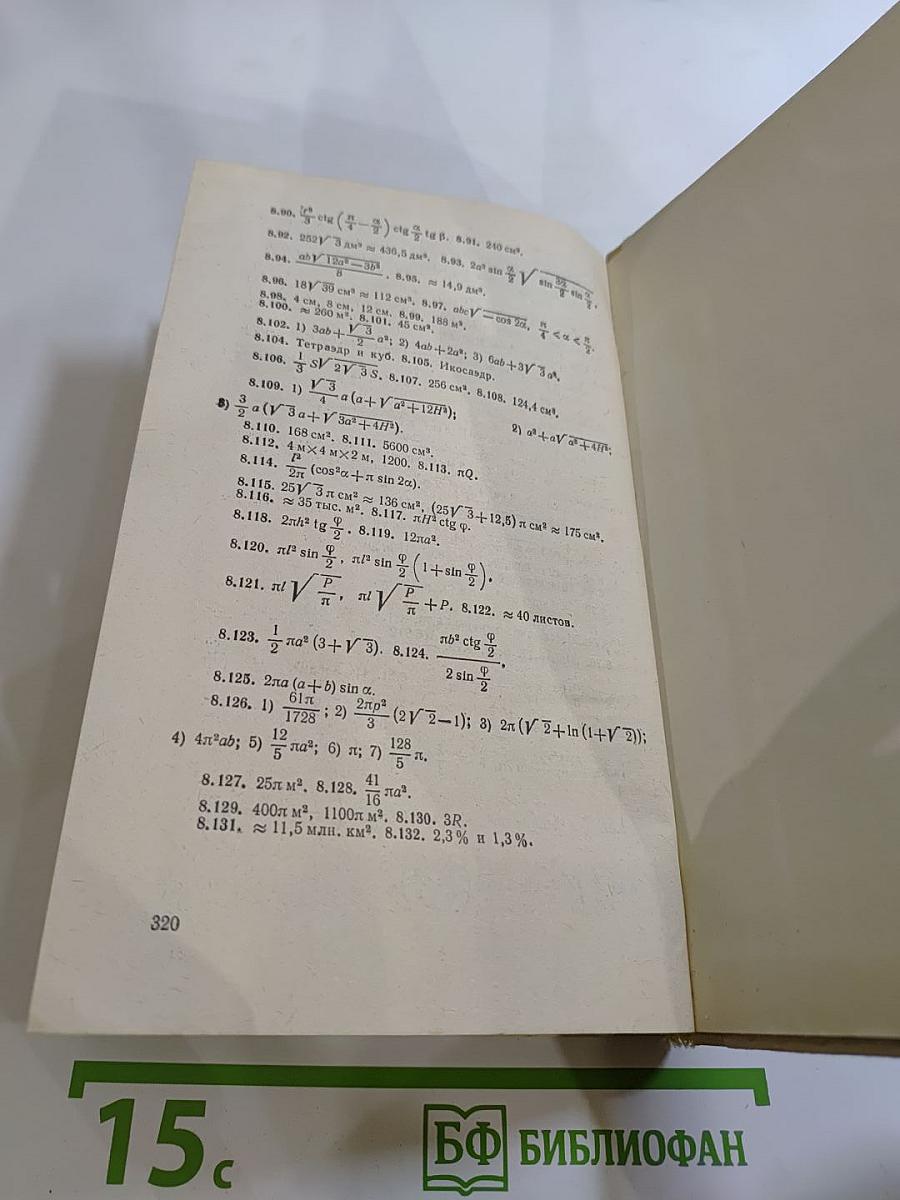 8.90. r³/3 ctg (π/4 − α/2) ctg α/2 tg β. 8.91. 240 см³.
8.92. 252√3 дм³ ≈ 436,5 дм³. 8.93. 2a³ sin α/2 √(sin 3α/2 sin α/2).
8.94. ab√(12a²−3b²)/8. 8.95. ≈ 14,9 дм³.
8.96. 18√39 см³ ≈ 112 см³. 8.97. abc√(−cos 2α), π/4 < α < π/2.
8.98. 4 см, 8 см, 12 см. 8.99. 188 м³.
8.100. ≈ 260 м². 8.101. 45 см³.
8.102. 1) 3ab+√3/2 a²; 2) 4ab+2a²; 3) 6ab+3√3 a².
8.104. Тетраэдр и куб. 8.105. Икосаэдр.
8.106. 1/3 S√(2√3 S). 8.107. 256 см³. 8.108. 124,4 см³.
8.109. 1) √3/4 a (a+√(a²+12H²)); 2) a²+a√(a²+4H²);
3) 3/2 a (√3 a+√(3a²+4H²)).
8.110. 168 см². 8.111. 5600 см³.
8.112. 4 м×4 м×2 м, 1200. 8.113. πQ.
8.114. l²/2π (cos²α+π sin 2α).
8.115. 25√3 π см² ≈ 136 см², (25√3+12,5) π см² ≈ 175 см².
8.116. ≈ 35 тыс. м². 8.117. πH² ctg φ.
8.118. 2πh² tg φ/2. 8.119. 12πa².
8.120. πl² sin φ/2, πl² sin φ/2 (1+sin φ/2).
8.121. πl √(P/π), πl √(P/π)+P. 8.122. ≈ 40 листов.
8.123. 1/2 πa² (3+√3). 8.124. πb² ctg φ/2 / 2 sin φ/2.
8.125. 2πa (a+b) sin α.
8.126. 1) 61π/1728; 2) 2πp²/3 (2√2−1); 3) 2π (√2+ln (1+√2));
4) 4π²ab; 5) 12/5 πa²; 6) π; 7) 128/5 π.
8.127. 25π м². 8.128. 41/16 πa².
8.129. 400π м², 1100π м². 8.130. 3R.
8.131. ≈ 11,5 млн. км². 8.132. 2,3% и 1,3%.
320
15 с
БФ БИБЛИОФАН